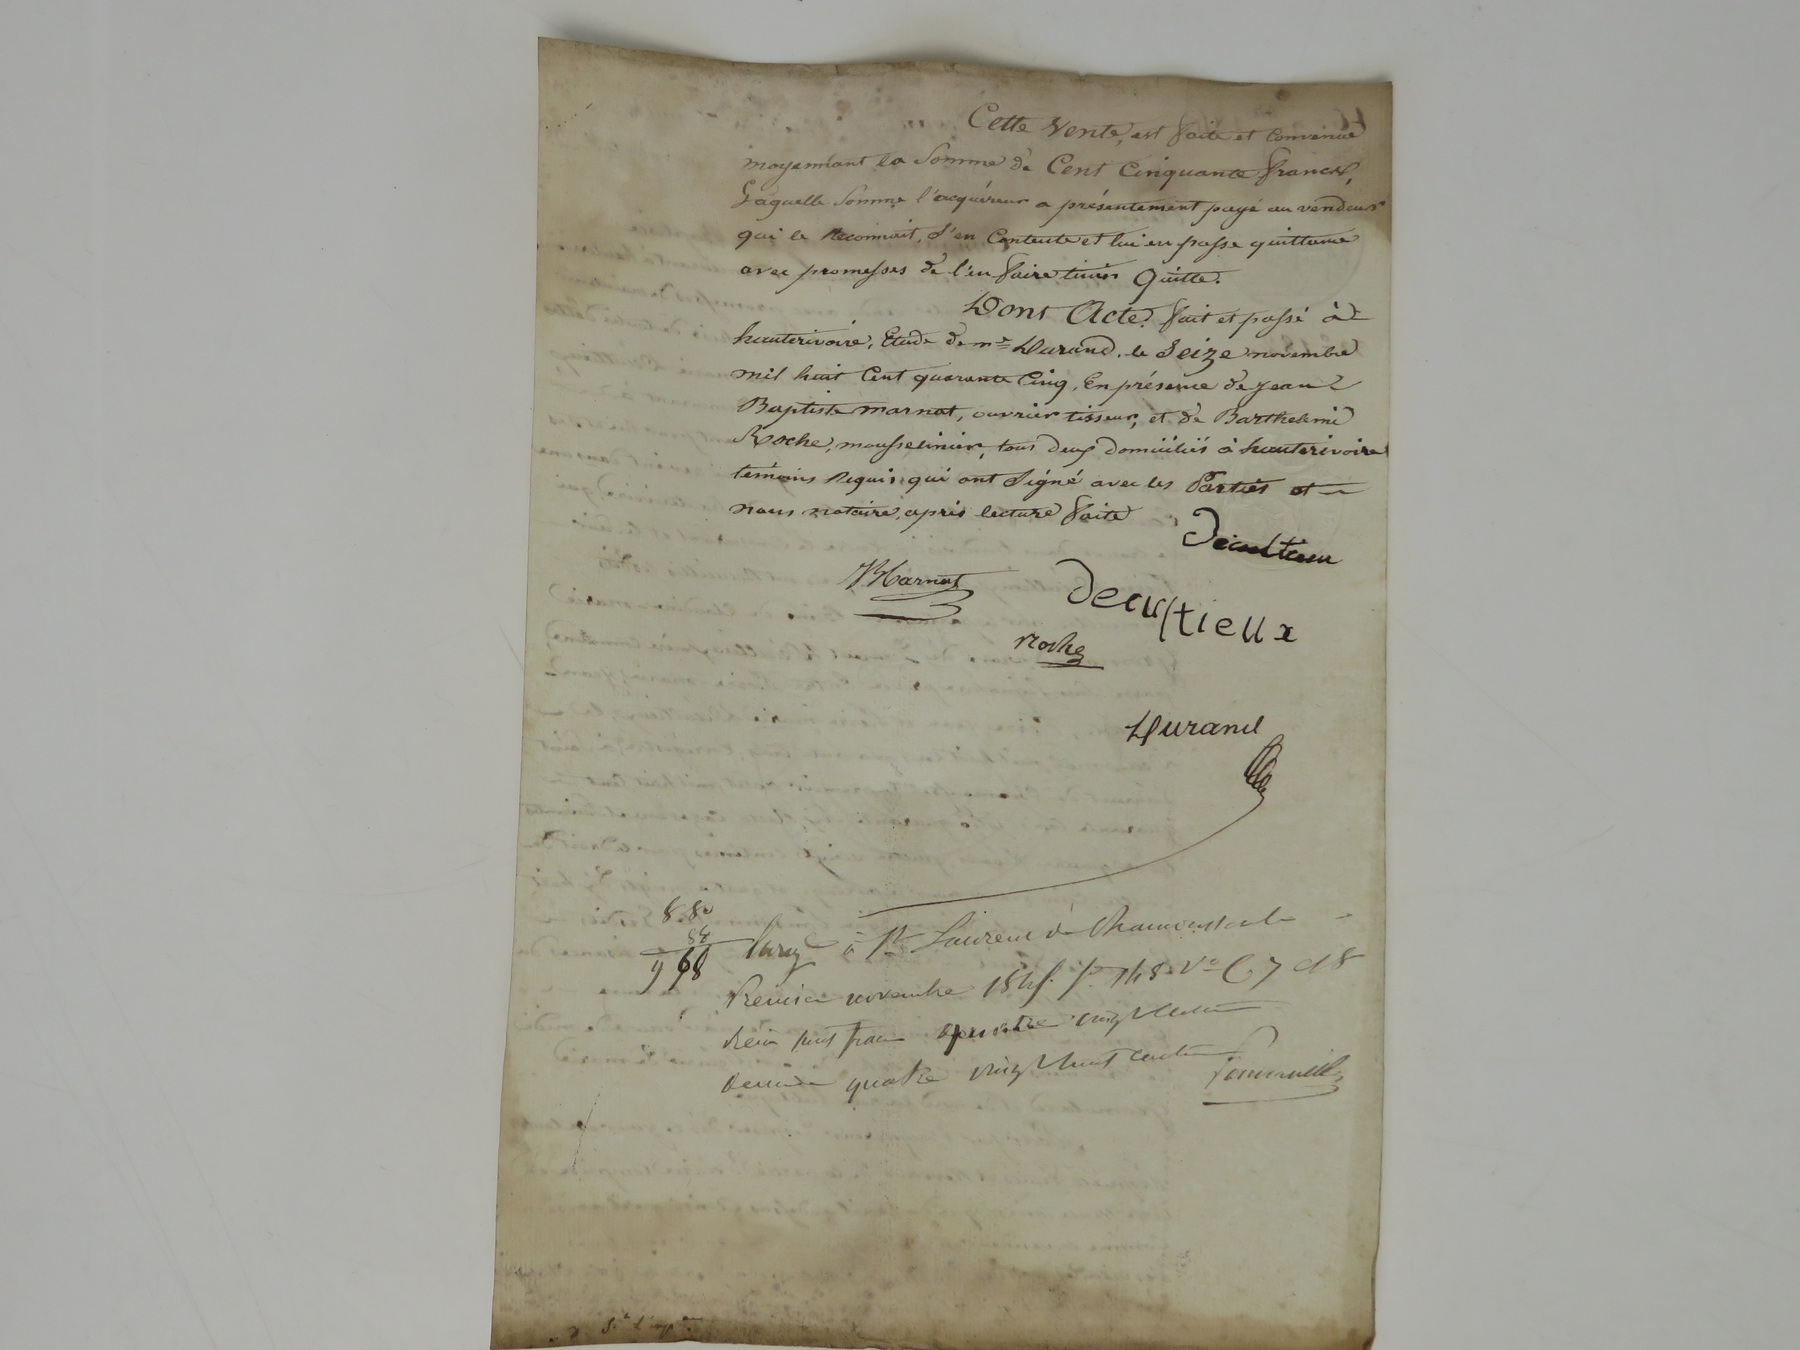 Cette Vente, est faite et Convenue
moyennant la Somme de Cent Cinquante francs,
Laquelle Somme l'acquéreur a présentement payé au vendeur
qui le reconnait, S'en Contente et lui en passe quittance
avec promesses de l'en faire tenir Quitte.
Dont Acte. fait et passé à
hauterivoire, Etude de me Durand, le Seize novembre
mil huit Cent quarante Cinq, En présence de jean
Baptiste marnat, ouvrier tisseur, et de Barthelemi
Roche, mousselinier, tous deux domiciliés à hauterivoire
témoins requis qui ont Signé avec les Parties et
nous notaire, après lecture faite
Decultieux
JBMarnat
Decultieux
Roche
Durand
8 80
88
9 68
à St Laurent de Chamousset le
novembre 1845. f. 148 Vo C 7 et 8
Reçu huit francs quatre vingt
décime quatre vingt huit centimes